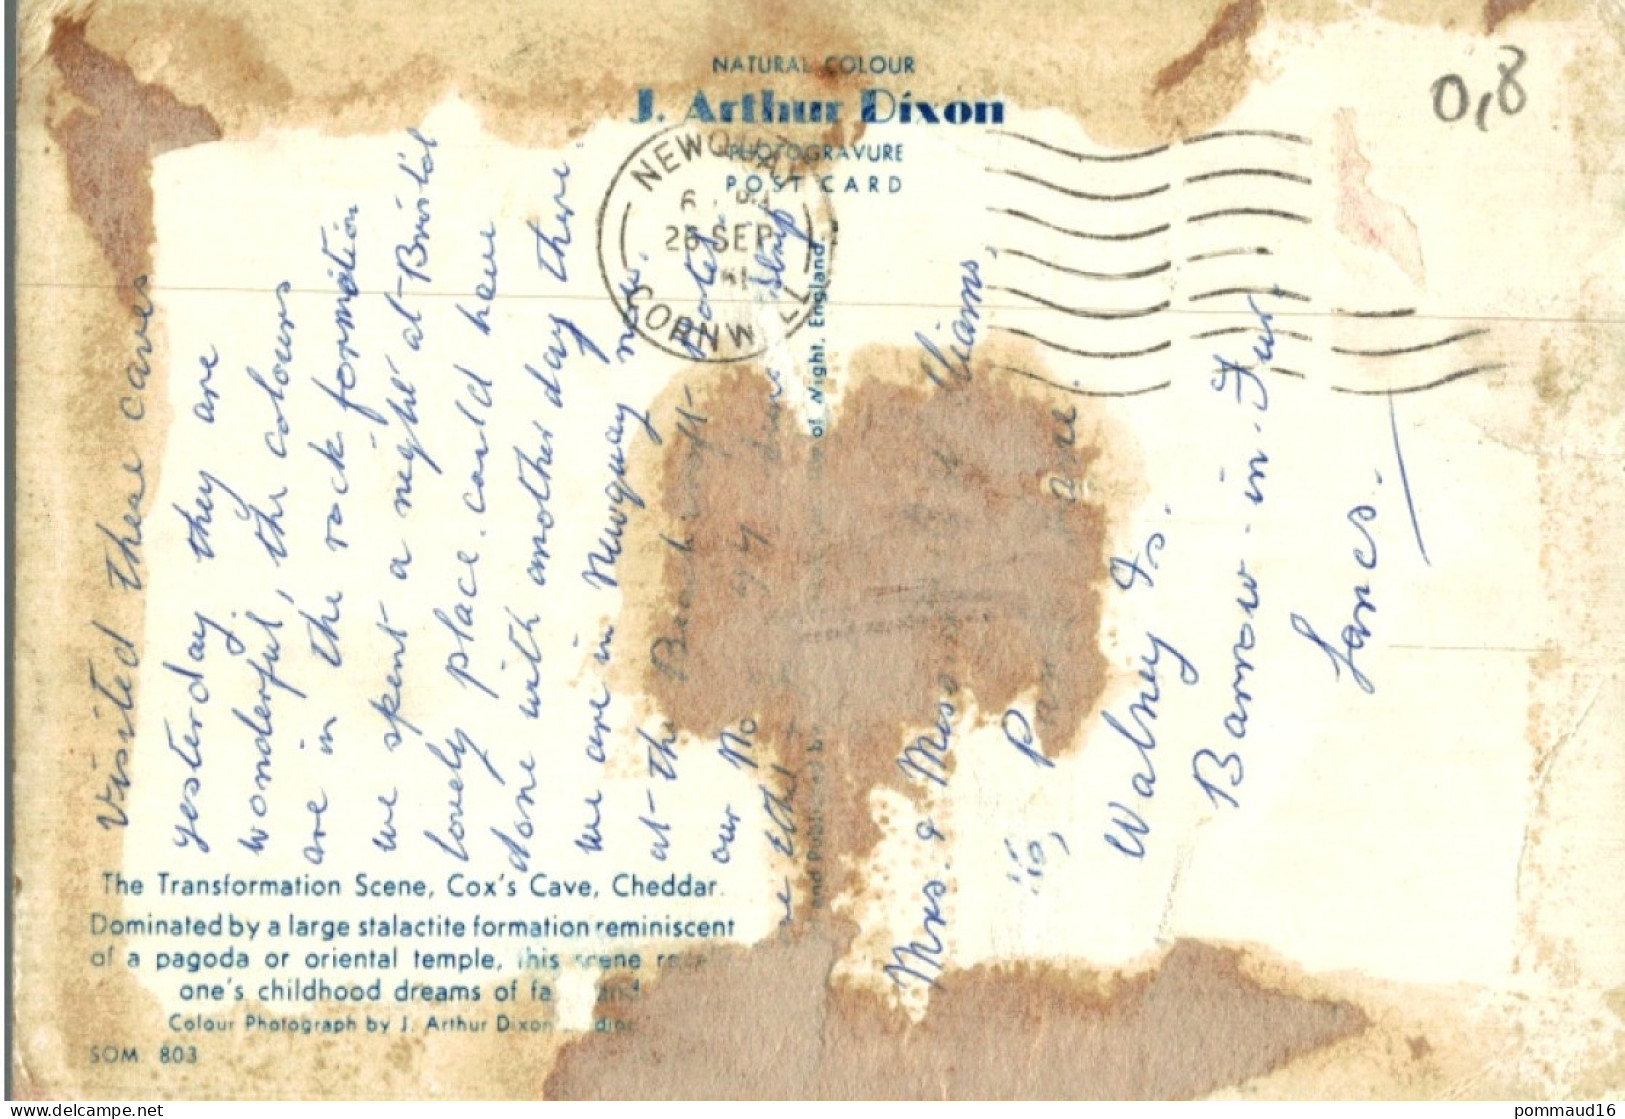 NATURAL COLOUR
J. Arthur Dixon
PHOTOGRAVURE
POST CARD
0,8
NEWQUAY
SEP
CORNWALL
Visited these caves
yesterday they are
wonderful, the colours
are in the rock formation
we spent a night at Bristol
lovely place. could have
done with another day there.
we are in Newquay now.
at the Beachcroft Hotel
our No 94
of Wight, England.
and Published by
Mrs. & Miss
Walney Is.
Barrow-in-Fur
Lancs.
The Transformation Scene, Cox's Cave, Cheddar.
Dominated by a large stalactite formation reminiscent
of a pagoda or oriental temple, this scene
one's childhood dreams of
Colour Photograph by J. Arthur Dixon
SOM 803
delcampe.net
pommaud16